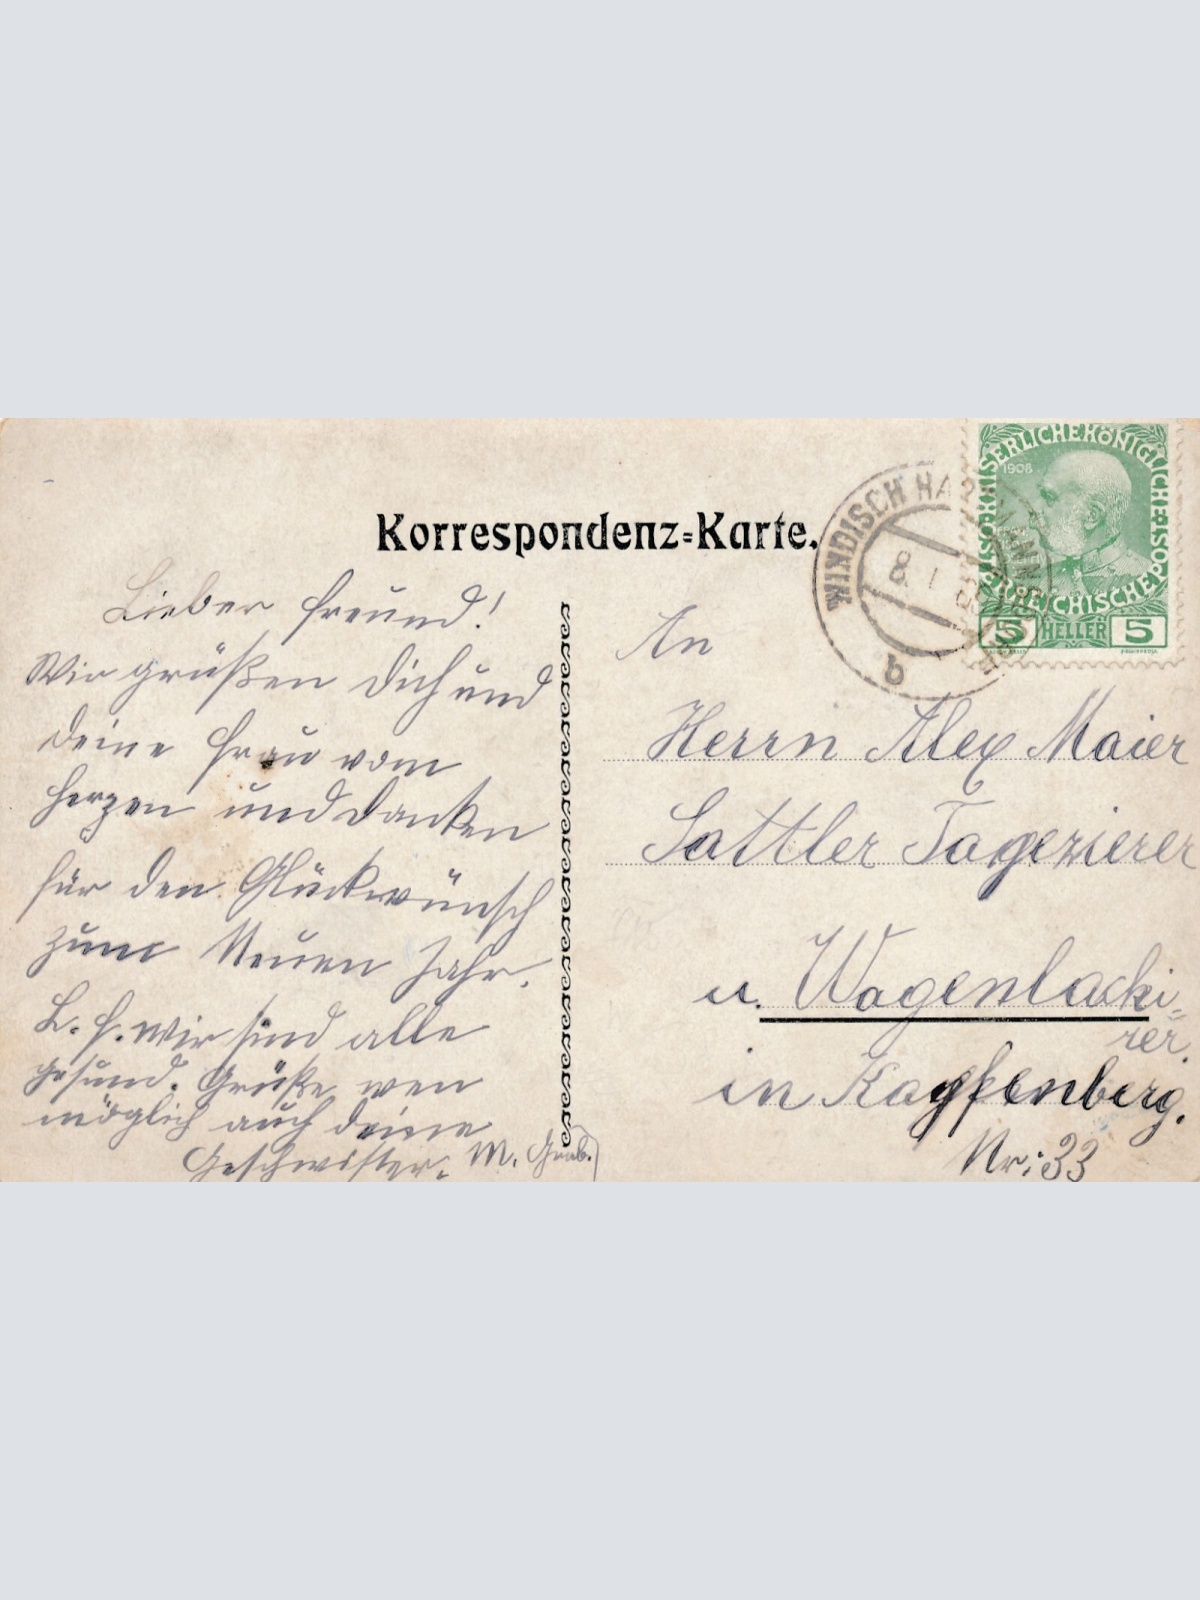 Korrespondenz=Karte.
WINDISCH HA
8 I
b
KAISERLICHEKÖNIGLICHEÖSTERREICHISCHEPOST
1908
5 HELLER 5
Lieber Freund!
Wir grüßen Dich und
Deine Frau vom
Herzen und danken
für den Glückwünsch
zum Neuen Jahr.
L. F. Wir sind alle
gesund. Grüße wen
möglich auch deine
Geschwister. M. Grab.
An
Herrn Alex Maier
Sattler Tagezierer
u. Wagenlacki=
rer.
in Kapfenberg.
Nr: 33